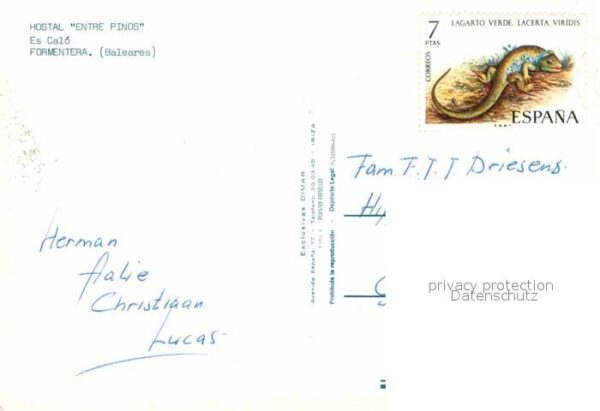 HOSTAL "ENTRE PINOS"
Es Caló
FORMENTERA. (Baleares)
7
PTAS
LAGARTO VERDE. LACERTA VIRIDIS
CORREOS
ESPAÑA
Exclusivas DIMAR
Avenida España, 17 - Teléfono 30 03 45 - IBIZA
Prohibida la reproducción - Depósito Legal
Fam. T. T. T Driesens.
Herman
Aalie
Christiaan
Lucas
privacy protection
Datenschutz